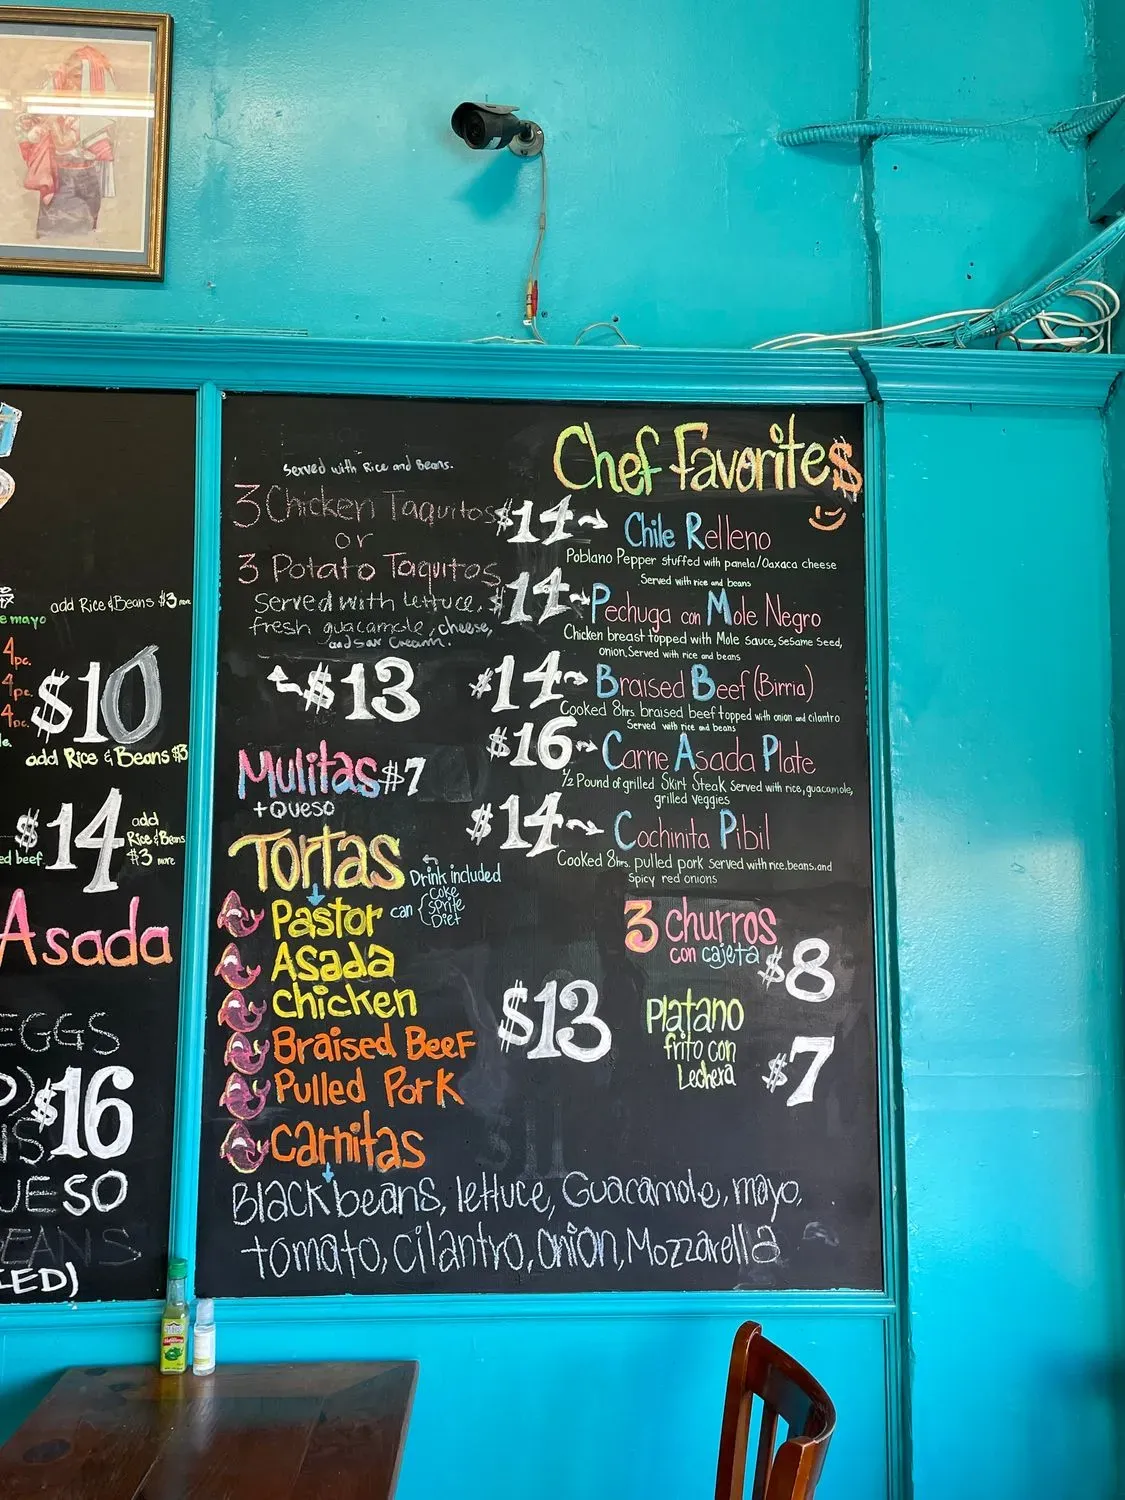 add Rice & Beans $3 more
e mayo
4pc.
4pc.
4pc.
$10
le.
add Rice & Beans $3
$14
add
Rice & Beans
$3 more
ed beef.
Asada
EGGS
P)
$16
NS
UESO
EANS
EED)
Served with Rice and Beans.
3 Chicken Taquitos
or
3 Potato Taquitos
Served with lettuce,
fresh guacamole, cheese,
and sour cream.
$13
Mulitas $7
+ Queso
Tortas
Drink included
can { Coke
Sprite
Diet
Pastor
Asada
chicken
Braised Beef
Pulled Pork
Carnitas
$13
Black beans, lettuce, Guacamole, mayo,
tomato, cilantro, onion, Mozzarella
Chef Favorite$
$14 Chile Relleno
Poblano Pepper stuffed with panela/Oaxaca cheese
Served with rice and beans
$14 Pechuga con Mole Negro
Chicken breast topped with Mole Sauce, Sesame Seed,
onion. Served with rice and beans
$14 Braised Beef (Birria)
Cooked 8hrs braised beef topped with onion and cilantro
Served with rice and beans
$16 Carne Asada Plate
1/2 Pound of grilled Skirt Steak Served with rice, guacamole,
grilled veggies
$14 Cochinita Pibil
Cooked 8hrs. pulled pork served with rice, beans, and
Spicy red onions
3 churros
con cajeta
$8
Platano
frito con
Lechera
$7